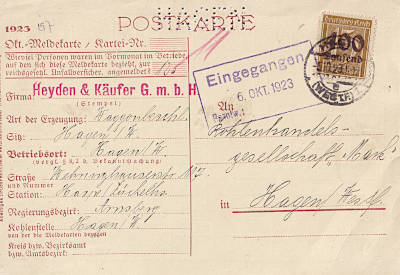 POSTKARTE
1923 157
Okt.-Meldekarte / Kartei-Nr.
11
Wieviel Personen waren im Vormonat im Betriebe,
auf den sich diese Meldekarte bezieht, zur
reichsgesetzl. Unfallversicher. angemeldet?
105
Firma:
Heyden & Käufer G. m. b. H.
(Stempel)
Art der Erzeugung:
Sitz: Hagen/W.
Betriebsort: Hagen/W.
(vergl. § 2 d. Bekanntmachung)
Straße
und Nummer
Station:
Regierungsbezirk: Arnsberg
Kohlenstelle Hagen/W.
von der die Meldekarten bezogen
Kreis bzw. Bezirksamt
bzw. Amtsbezirk:
Deutsches Reich
400
tausend
(WESTF.)
Eingegangen
6. OKT. 1923
An
Kohlenhandels-
gesellschaft „Mark"
in
Hagen Westf.